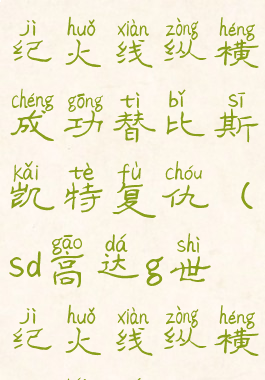 jì huǒ xiàn zòng héng
纪火线纵横
chéng gōng tì bǐ sī
成功替比斯
kǎi tè fù chóu
凯特复仇（
gāo dá shì
sd高达g世
jì huǒ xiàn zòng héng
纪火线纵横